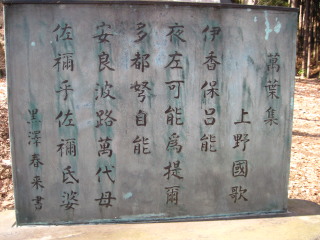 萬葉集
上野國歌
伊香保呂能
夜左可能爲提爾
多都弩自能
安良波路萬代母
佐禰乎佐禰氐婆
黒澤春来書